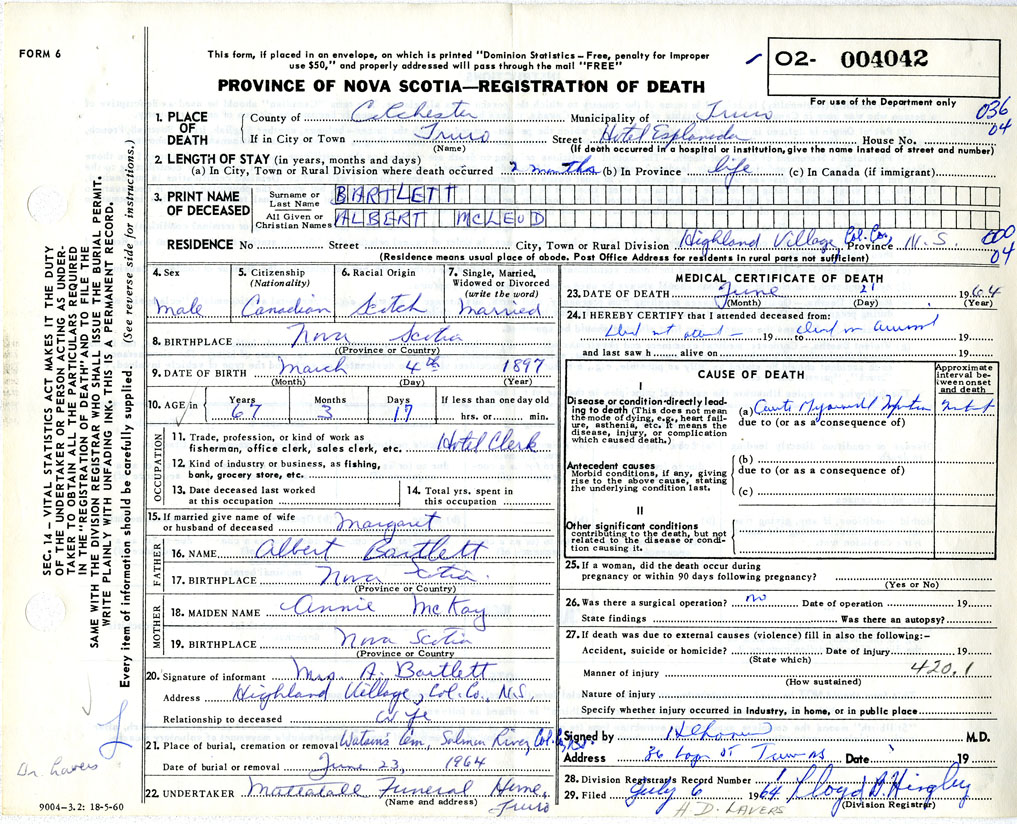 FORM 6
This form, if placed in an envelope, on which is printed "Dominion Statistics – Free, penalty for improper
use $50," and properly addressed will pass through the mail "FREE"
O2- 004042
PROVINCE OF NOVA SCOTIA—REGISTRATION OF DEATH
For use of the Department only
036
04
1. PLACE OF DEATH
County of Colchester Municipality of Truro
If in City or Town Truro Street Hotel Esplanade House No.
(Name)
(If death occurred in a hospital or institution, give the name instead of street and number)
2. LENGTH OF STAY (in years, months and days)
(a) In City, Town or Rural Division where death occurred 2 months (b) In Province life (c) In Canada (if immigrant)
3. PRINT NAME OF DECEASED
Surname or Last Name BARTLETT
All Given or Christian Names ALBERT McLEOD
RESIDENCE No Street City, Town or Rural Division Highland Village Col. Co. Province N.S. 000
04
(Residence means usual place of obode. Post Office Address for residents in rural parts not sufficient)
4. Sex
Male
5. Citizenship
(Nationality)
Canadian
6. Racial Origin
Scotch
7. Single, Married,
Widowed or Divorced
(write the word)
Married
8. BIRTHPLACE Nova Scotia
((Province or Country)
9. DATE OF BIRTH March 4th 1897
(Month) (Day) (Year)
10. AGE in
Years Months Days If less than one day
67 3 17 hrs. or min.
OCCUPATION
11. Trade, profession, or kind of work as
fisherman, office clerk, sales clerk, etc. Hotel Clerk
12. Kind of industry or business, as fishing,
bank, grocery store, etc.
13. Date deceased last worked
at this occupation
14. Total yrs. spent in
this occupation
15. If married give name of wife
or husband of deceased Margaret
FATHER
16. NAME Albert Bartlett
17. BIRTHPLACE Nova Scotia.
(Province or Country)
MOTHER
18. MAIDEN NAME Annie McKay
19. BIRTHPLACE Nova Scotia
(Province or Country
20. Signature of informant Mrs. A. Bartlett
Address Highland Village, Col. Co., N.S.
Relationship to deceased wife
21. Place of burial, cremation or removal Watson's Cem., Salmon River, Col. Co., N.S.
Date of burial or removal June 23, 1964
22. UNDERTAKER Mattatall Funeral Home,
Truro
(Name and address)
MEDICAL CERTIFICATE OF DEATH
23. DATE OF DEATH June 21 1964
(Month) (Day) (Year)
24. I HEREBY CERTIFY that I attended deceased from:
did not attend – 19 to dead on arrival 19
and last saw h alive on 19
CAUSE OF DEATH
Approximate
interval be-
tween onset
and death
I
Disease or condition directly lead-
ing to death (This does not mean
the mode of dying, e.g., heart fail-
ure, asthenia, etc. It means the
disease, injury, or complication
which caused death.)
(a) Acute Myocardial Infarction
due to (or as a consequence of)
Antecedent causes
Morbid conditions, if any, giving
rise to the above cause, stating
the underlying condition last.
(b)
due to (or as a consequence of)
(c)
II
Other significant conditions
contributing to the death, but not
related to the disease or condi-
tion causing it.
25. If a woman, did the death occur during
pregnancy or within 90 days following pregnancy?
(Yes or No)
26. Was there a surgical operation? no Date of operation 19
State findings Was there an autopsy?
27. If death was due to external causes (violence) fill in also the following:–
Accident, suicide or homicide? Date of injury 19
(State which)
Manner of injury 420.1
(How sustained)
Nature of injury
Specify whether injury occurred in industry, in home, or in public place
Signed by M.D.
Address 36 Logan St Truro NS Date 19
28. Division Registrar's Record Number
29. Filed July 6 1964 Lloyd D. Hingley
(Division Registrar)
H. D. LAVERS
SEC. 14 – VITAL STATISTICS ACT MAKES IT THE DUTY
OF THE UNDERTAKER OR PERSON ACTING AS UNDER-
TAKER TO OBTAIN ALL THE PARTICULARS REQUIRED
IN THE "REGISTRATION OF DEATH" AND TO FILE THE
SAME WITH THE DIVISION REGISTRAR WHO SHALL ISSUE THE BURIAL PERMIT.
WRITE PLAINLY WITH UNFADING INK. THIS IS A PERMANENT RECORD.
Every item of information should be carefully supplied. (See reverse side for instructions.)
Dr. Lavers
9004–3.2: 18-5-60